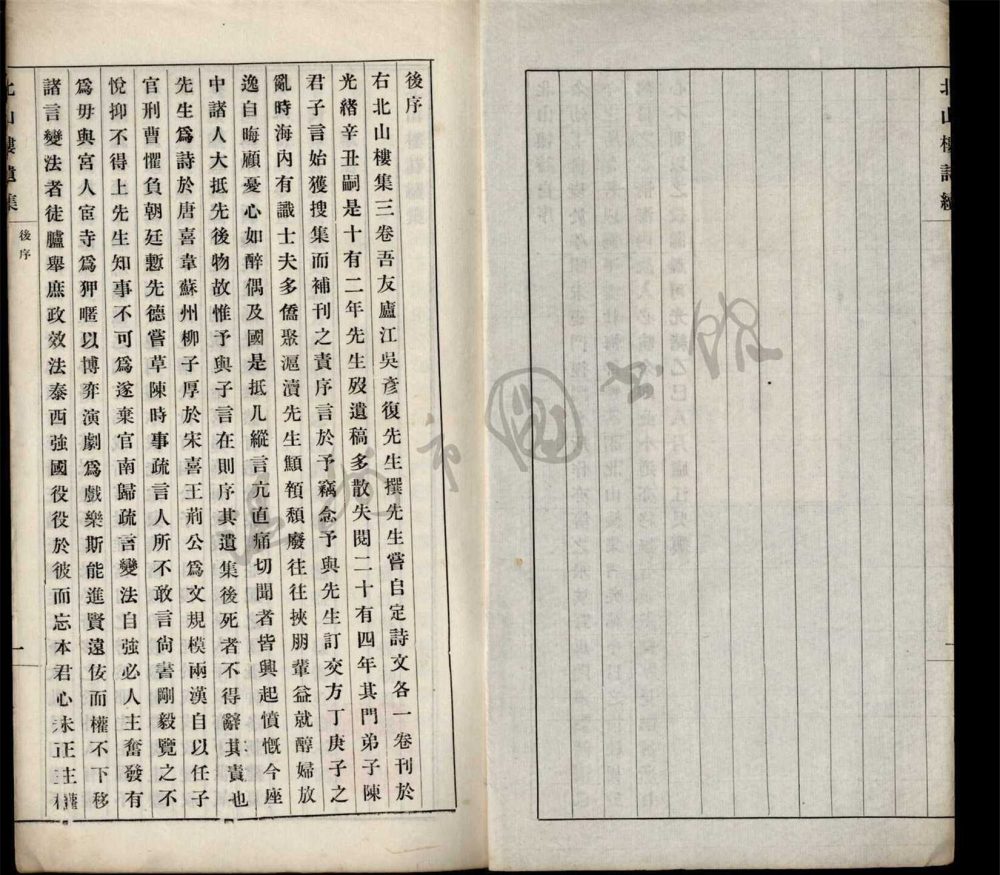 北山樓詩續
後序
右北山樓集三卷吾友廬江吳彥復先生撰先生嘗自定詩文各一卷刊於
光緒辛丑嗣是十有二年先生歿遺稿多散失閱二十有四年其門弟子陳
君子言始獲搜集而補刊之責序言於予竊念予與先生訂交方丁庚子之
亂時海內有識士夫多僑聚滬瀆先生顦顇頹廢往往挾朋輩益就醇婦放
逸自晦顧憂心如醉偶及國是抵几縱言亢直痛切聞者皆興起憤慨今座
中諸人大抵先後物故惟予與子言在則序其遺集後死者不得辭其責也
先生爲詩於唐喜韋蘇州柳子厚於宋喜王荊公爲文規模兩漢自以任子
官刑曹懼負朝廷慙先德嘗草陳時事疏言人所不敢言尙書剛毅覽之不
悅抑不得上先生知事不可爲遂棄官南歸疏言變法自強必人主奮發有
爲毋與宮人宦寺爲狎暱以博弈演劇爲戲樂斯能進賢遠佞而權不下移
諸言變法者徒臚舉庶政效法泰西強國役役於彼而忘本君心未正主權
北山樓遺集
後序
一
圖